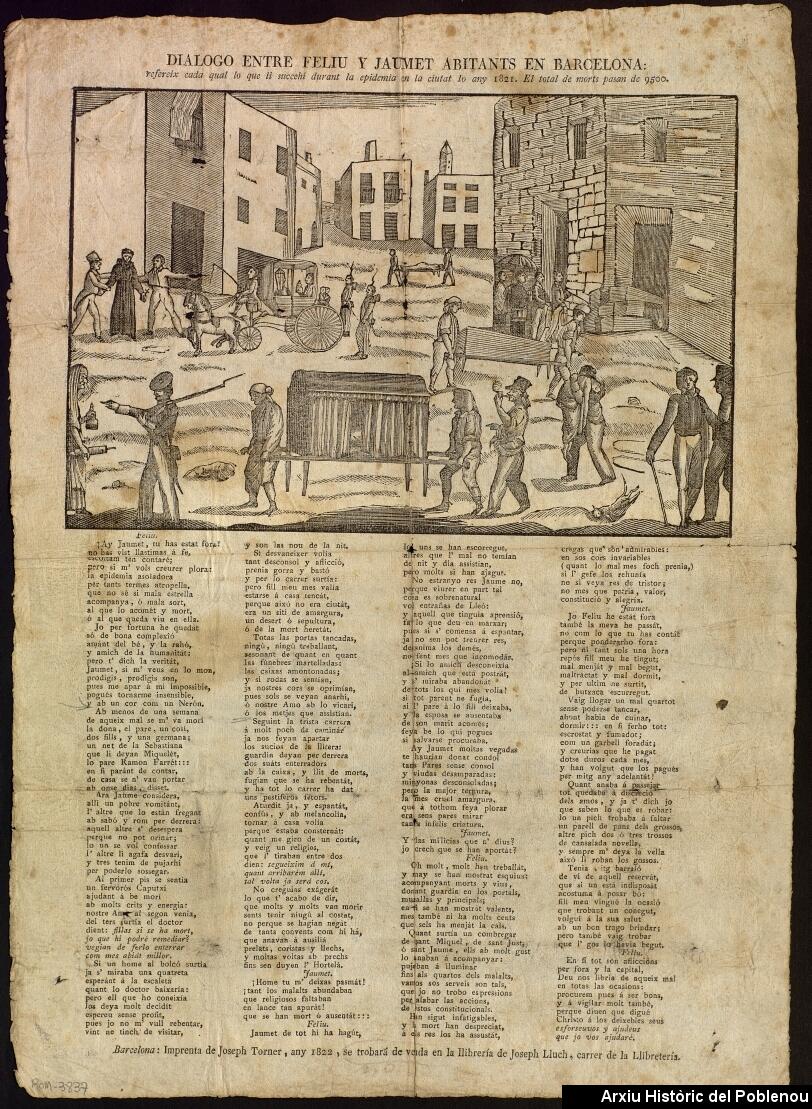 DIALOGO ENTRE FELIU Y JAUMET ABITANTS EN BARCELONA:
refereix cada qual lo que li succehí durant la epidemia en la ciutat lo any 1821. El total de morts pasan de 9500.
Feliu.
¡Ay Jaumet, tu has estat fora!
no has vist llastimas á fe,
escoltam ten contaré;
pero si m' vols creurer plora:
la epidemia asoladora
per tants termes atropella,
que no sé si mala estrella
acompanya, ó mala sort,
al que lo aconàt y mort,
ó al que queda viu en ella.
Jo per fortuna he quedat
só de bona complexió
amánt del bé, y la rahó,
y amich de la humanitat:
pero t' dich la veritàt,
Jaumet, si m' veus en lo mon,
prodigis, prodigis son,
pues me apar á mi impossible,
pogués tornarme insensible,
y ab un cor com un Neròn.
Ab menos de una semana
de aqueix mal se m' va mori
la dona, el pare, un cosi,
dos fills, y una germana;
un net de la Sebastiana
que li deyan Miquelét,
lo pare Ramon Farrét:::
en fi paránt de contar,
de casa se n' van portar
ab onse dias, disset.
Ara Jaume considera,
allí un pobre vomitánt,
l' altre que lo están fregant
ab sabó y rom per derrera;
aquell altre s' desespera
perque no pot orinar;
lo un se vol confessar
l' altre li agafa desvari,
y tres tenan de pujarhi
per poderlo sossegar.
Al primer pis se sentia
un fervorós Caputxi
ajudant á be mori
ab molts crits y energia:
nostre Amo al segon venia,
del ters surtia el doctor
dient: fillas si se ha mort,
jo que hi podré remediar?
vegian de ferlo enterrar
com mes abiàt millor.
Si un home al bolcó surtia
ja s' miraba una quatreta
esperánt á la escaleta
quant lo doctor baixaria:
pero ell que ho coneixia
los deya molt decidit
espereu sense profit,
pues jo no m' vull rebentar,
vint ne tinch de visitar,
y son las nou de la nit.
Si desvaneixer volia
tant desconsol y aflicció,
prenia gorra y bastó
y per lo carrer surtia:
pero fill meu mes valia
estarse á casa tencàt,
perque aixó no era ciutàt,
era un siti de amargura,
un desert ó sepultura,
ó de la mort heretàt.
Totas las portas tancadas,
ningú, ningú treballant,
sesonant de quant en quant
las fúnebres martelladas:
las caixas amontonadas;
y si rodas se sentian,
ja nostres cors se oprimian,
pues sols se veyan anarhi,
ó nostre Amo ab lo vicari,
ó los metjes que assistian.
Seguint la trista carrera
á molt poch de caminár
ja nos feyan apartar
los sucios de la llitera:
guardia deyan per derrera
dos suáts enterradors
ab la caixa, y llit de morts,
fugian que se ha rebentàt,
y ha tot lo carrer ha dat
uns pestiferos fetors.
Aturdit ja, y espantàt,
confús, y ab melancolia,
tornar á casa volia
perque estaba consternàt:
quant me giro de un costàt,
y veig un religiós,
que l' tiraban entre dos
dien: segueixim á mi,
quant arribarém allí,
tal volta ja será cos.
No creguias exágeràt
lo que t' acabo de dir,
que molts y molts van morir
sents tenir ningú al costat,
no perque se hagian negàt
de tants convents com hi há,
que anavan á auxiliá
prelats, coristas y llechs,
y moltas voltas ab prechs
fins sen duyen l' Hortelá.
Jaumet.
¡Home tu m' deixas pasmàt!
¡tant los malalts abundaban
que religiosos faltaban
en lance tan apuràt!
que se han mort ó ausentàt:::
Feliu.
Jaumet de tot hi ha hagút,
los uns se han escorregut,
altres que l' mal no temian
de nit y dia assistian,
pero molts si han ajagut.
No estranyo res Jaume no,
perque viurer en part tal
cosa es sobrenatural
vol entrañas de Lleó:
y aquell que tinguia aprensió,
fa lo que deu en marxar;
pues si s' comensa á espantar,
ja no sen pot treurer res,
desanima los demés,
no fent mes que incomodàr.
¡Si lo amich desconeixia
al amich que està postràt,
y s' miraba abandonàt
de tots los qui mes volia!
si tot parent ne fugia,
si l' pare á lo fill deixaba,
y la esposa se ausentaba
de son marit aconàt;
feya be lo qui pogués
si salvarse procuraba.
Ay Jaumet moltas vegadas
te haurian donat condol
tants Pares sense consol
y viudas desamparadas;
minyonas desconsoladas;
pero la major ternura,
la mes cruel amargura,
que á tothom feya plorar
era sens pares mirar
tanta infelis criatura.
Jaumet.
Y las milicias que n' dius?
jo crech que se han aportàt?
Feliu.
Oh molt, molt han treballàt,
y may se han mostrat esquius;
acompanyant morts y vius,
donant guardia en los portals,
murallas y principals;
en fi se han mostràt valents,
mes també n' hi ha molts cents
que sels ha menjàt la cals.
Quant surtia un combregar
de sant Miquel, de sant Just,
ó sant Jaume, ells ab molt gust
lo anaban á acompanyar:
pujeban á lluminar
fins als quartos dels malalts,
vamos sos serveis son tals,
que jo no trobo expresions
per alabar las accions,
de estos constitucionals.
Han sigut infatigables,
y á mort han despreciat,
á els res los ha assustàt,
cregas que son admirables:
en sos cors invariables
(quant lo mal mes foch prenia,)
si l' gefe los rehunia
no si veya res de tristor;
no mes que patria, valor,
constitució y alegria.
Jaumet.
Jo Feliu he estat fora
també la meva he passàt,
no com lo que tu has contàt
perque pondàegarho fora:
pero ni tant sols una hora
repós fill meu he tingut;
mal menjat y mal begut,
maltractat y mal dormit,
y per ultim ne surtit,
de butxaca escurregut.
Vaig llogar un mal quartot
sense poderse tancar,
abont habia de cuinar,
dormir::: en fi ferho tot:
escrostat y fumador;
com un garbell foradàt;
y creurias que he pagat
dotse duros cada mes,
y han volgut que los pagués
per mitg any adelantàt!
Quant anaba á passejar
tot quedaba á discreció
dels amos, y ja t' dich jo
que saben lo que es robar:
lo un pich trobaba á faltar
un parell de pans dels grossos,
altre pich dos ó tres trossos
de cansalada novella,
y sempre m' deya la vella
aixó li roban los gossos.
Tenia sitg barraló
de vi de aquell reservàt,
que si un está indisposàt
acostuma á pesar bó:
fill meu vingué la ocasió
que trobant un conegut,
volguí á la sua salut
ab un bon trago brindar;
pero també vaig trobar
que l' gos lo havia begut.
Feliu.
En fi tot son aficcions
per fora y la capital,
Deu nos libria de aqueix mal
en totas las ocasions:
procurem pues á ser bons,
y á vigilar molt també,
perque diuen que digué
Christo á los deixebles seus
esforseuvos y ajudeus
que jo vos ajudaré.
Barcelona: Imprenta de Joseph Torner, any 1822, se trobará de venda en la Llibrería de Joseph Lluch, carrer de la Llibretería.
ROM-3837
Arxiu Històric del Poblenou